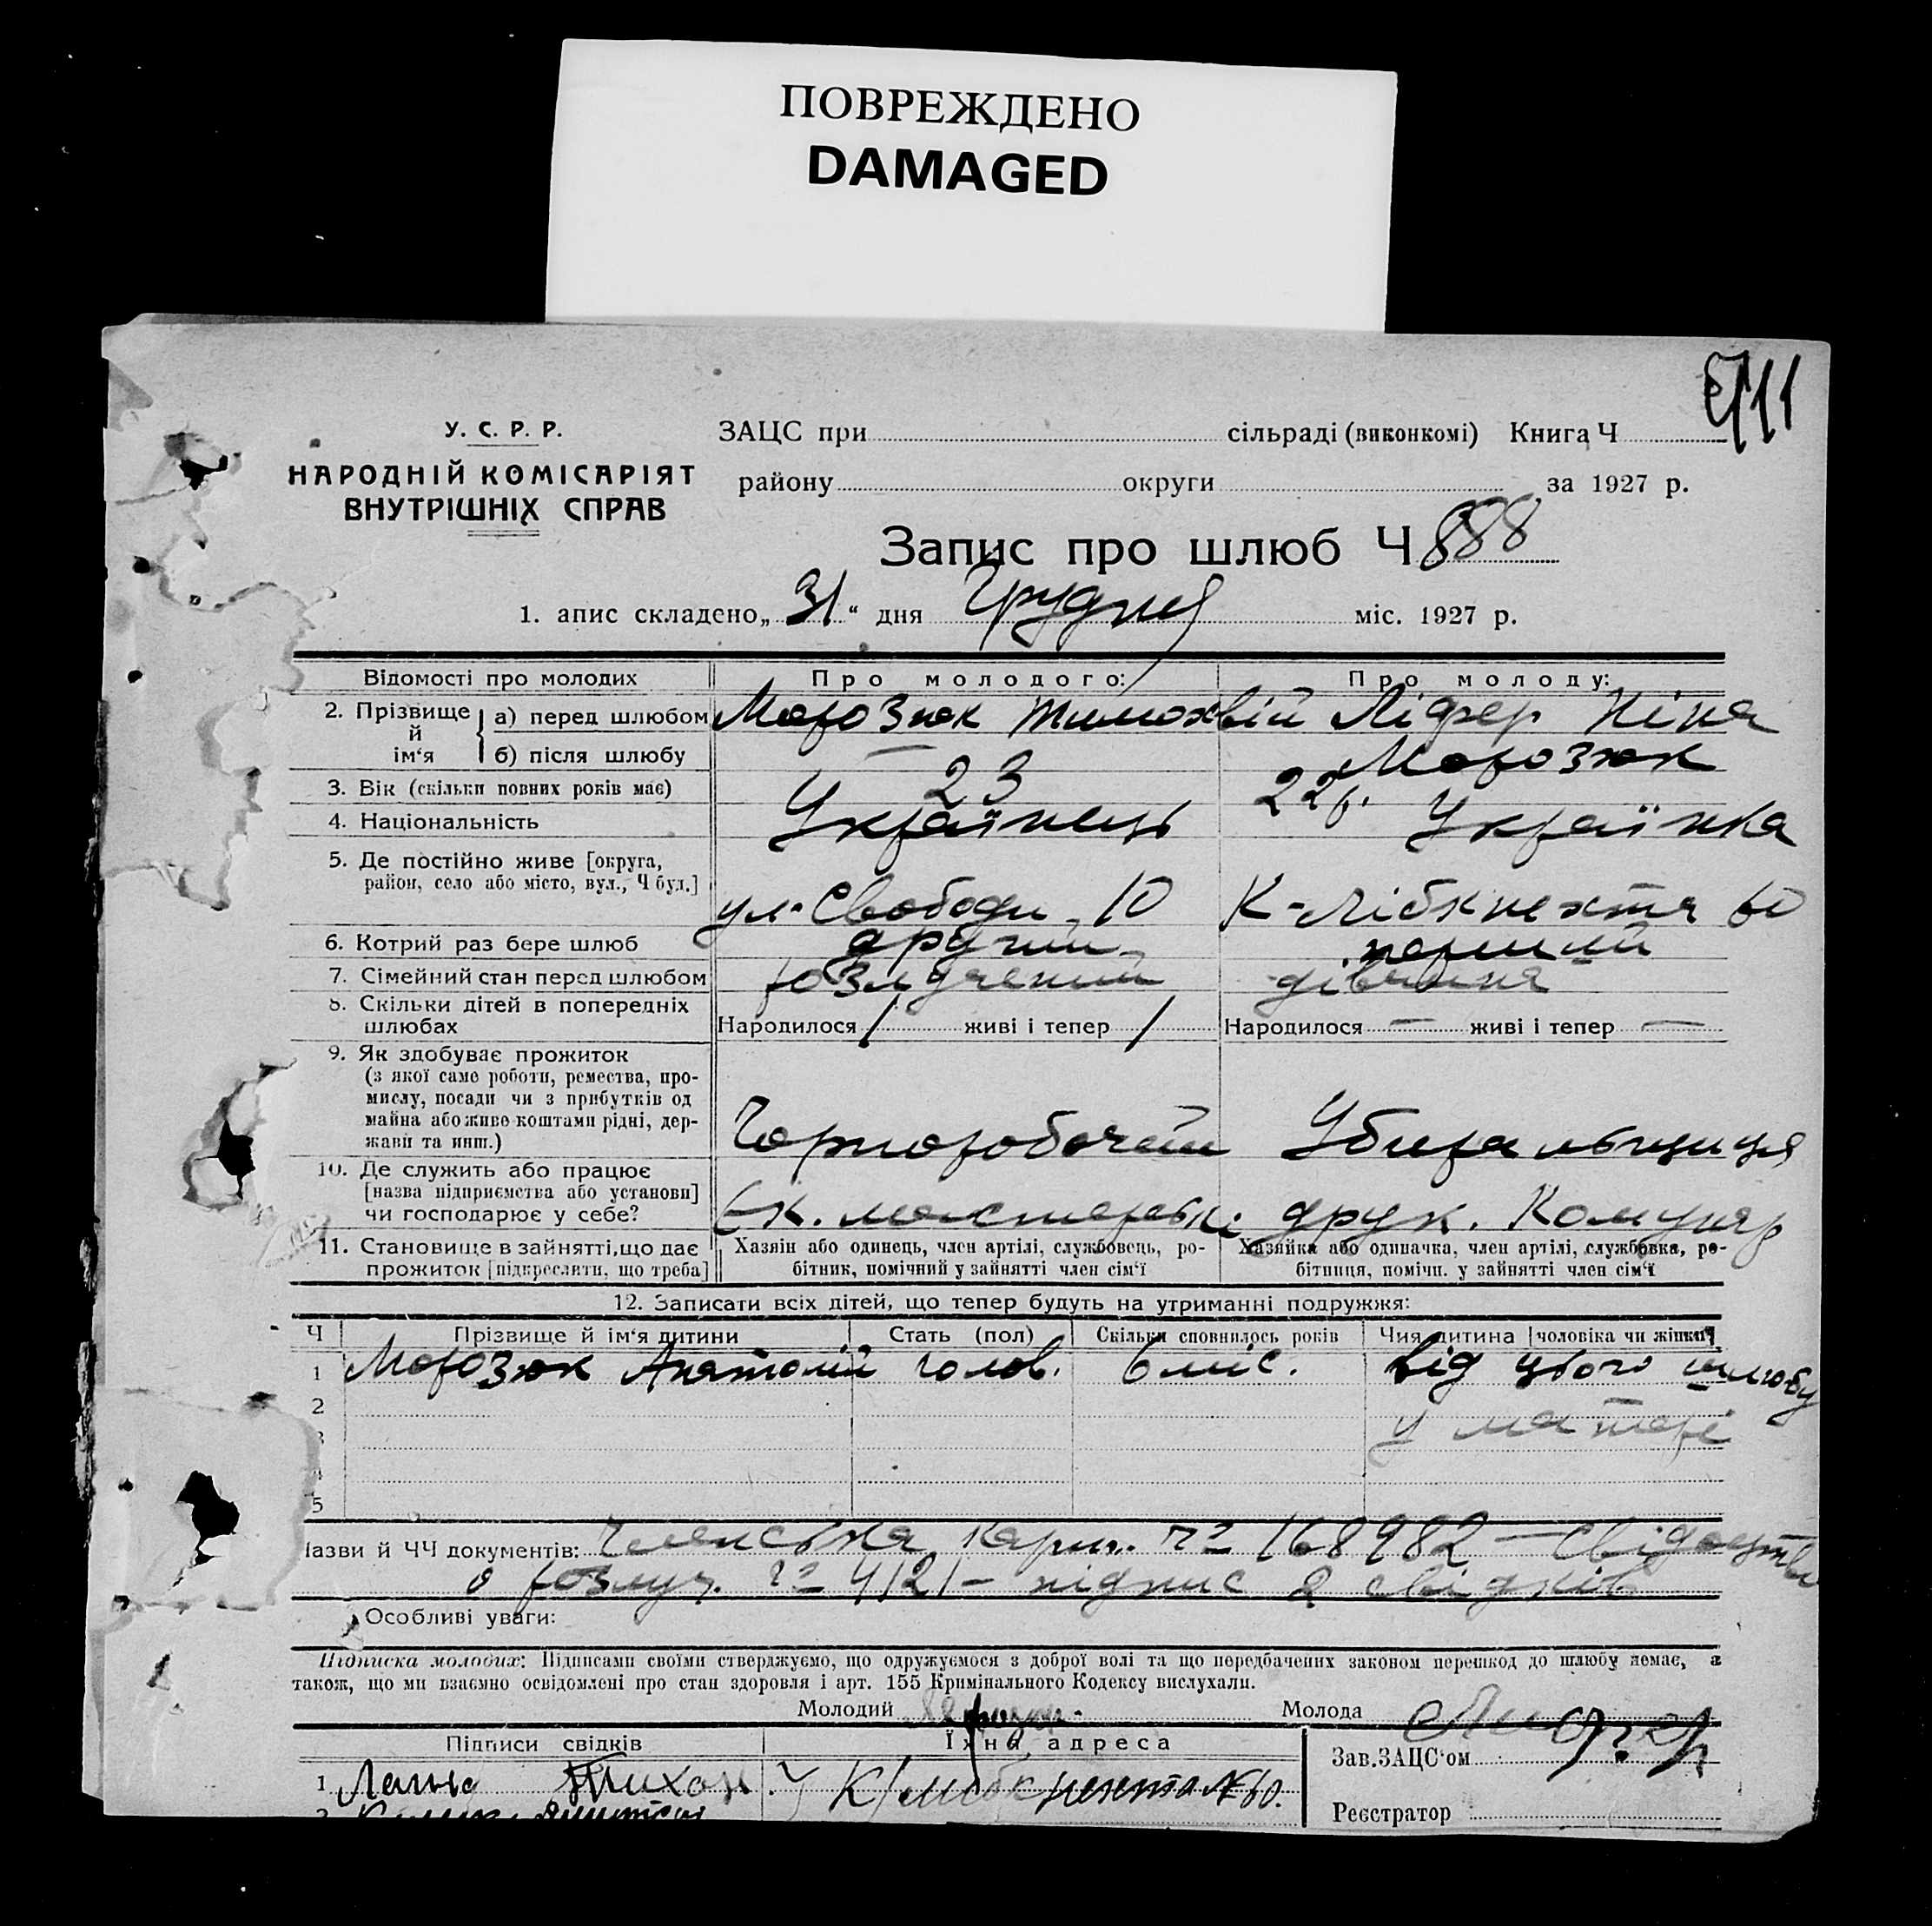 ПОВРЕЖДЕНО
DAMAGED
У. С. Р. Р.
НАРОДНІЙ КОМІСАРІЯТ
ВНУТРІШНІХ СПРАВ
ЗАЦС при сільраді (виконкомі) Книга Ч
району округи за 1927 р.
Запис про шлюб Ч 888
1. апис складено „31“ дня Грудня міс. 1927 р.
Відомості про молодих Про молодого: Про молоду:
2. Прізвище й ім‘я а) перед шлюбом Морозюк Тимохвій Ліфер Ніна
б) після шлюбу — Морозюк
3. Вік (скільки повних років має) 23 22 р.
4. Національність Українець Українка
5. Де постійно живе [округа,
район, село або місто, вул., Ч буд.] ул. Свободи 10 К-Лібкнехта 60
6. Котрий раз бере шлюб другий перший
7. Сімейний стан перед шлюбом розлучений дівчина
8. Скільки дітей в попередніх
шлюбах Народилося 1 живі і тепер 1 Народилося — живі і тепер —
9. Як здобуває прожиток
(з якої саме роботи, ремества, про-
мислу, посади чи з прибутків од
майна або живе коштами рідні, дер-
жави та инш.) Чорноробочий Убиральщиця
10. Де служить або працює
[назва підприємства або установи]
чи господарює у себе? Ек. майстерські друк. Комунар
11. Становище в зайнятті, що дає
прожиток [підкреслити, що треба]
Хазяїн або одинець, член артілі, службовець, ро-
бітник, помічний у зайнятті член сім‘ї
Хазяйка або одиначка, член артілі, службовка, ро-
бітниця, помічн. у зайнятті член сім‘ї
12. Записати всіх дітей, що тепер будуть на утриманні подружжя:
Ч Прізвище й ім‘я дитини Стать (пол) Скільки сповнилось років Чия дитина [чоловіка чи жінки]
1 Морозюк Анатолій чолов. 6 міс. від цього шлюбу
2 у матері
3
4
5
Назви й ЧЧ документів: Членська карт. № 168982 — Свідоцтво
о розлуч. № 4121 — підпис 2 свідків
Особливі уваги:
Підписка молодих: Підписами своїми стверджуємо, що одружуємося з доброї волі та що передбачених законом перешкод до шлюбу немає, а
також, що ми взаємно освідомлені про стан здоровля і арт. 155 Кримінального Кодексу вислухали.
Молодий Молода Лифер
Підписи свідків Їхня адреса Зав.ЗАЦС‘ом
1 Тихон К Лібкнехта № 60.
Реєстратор